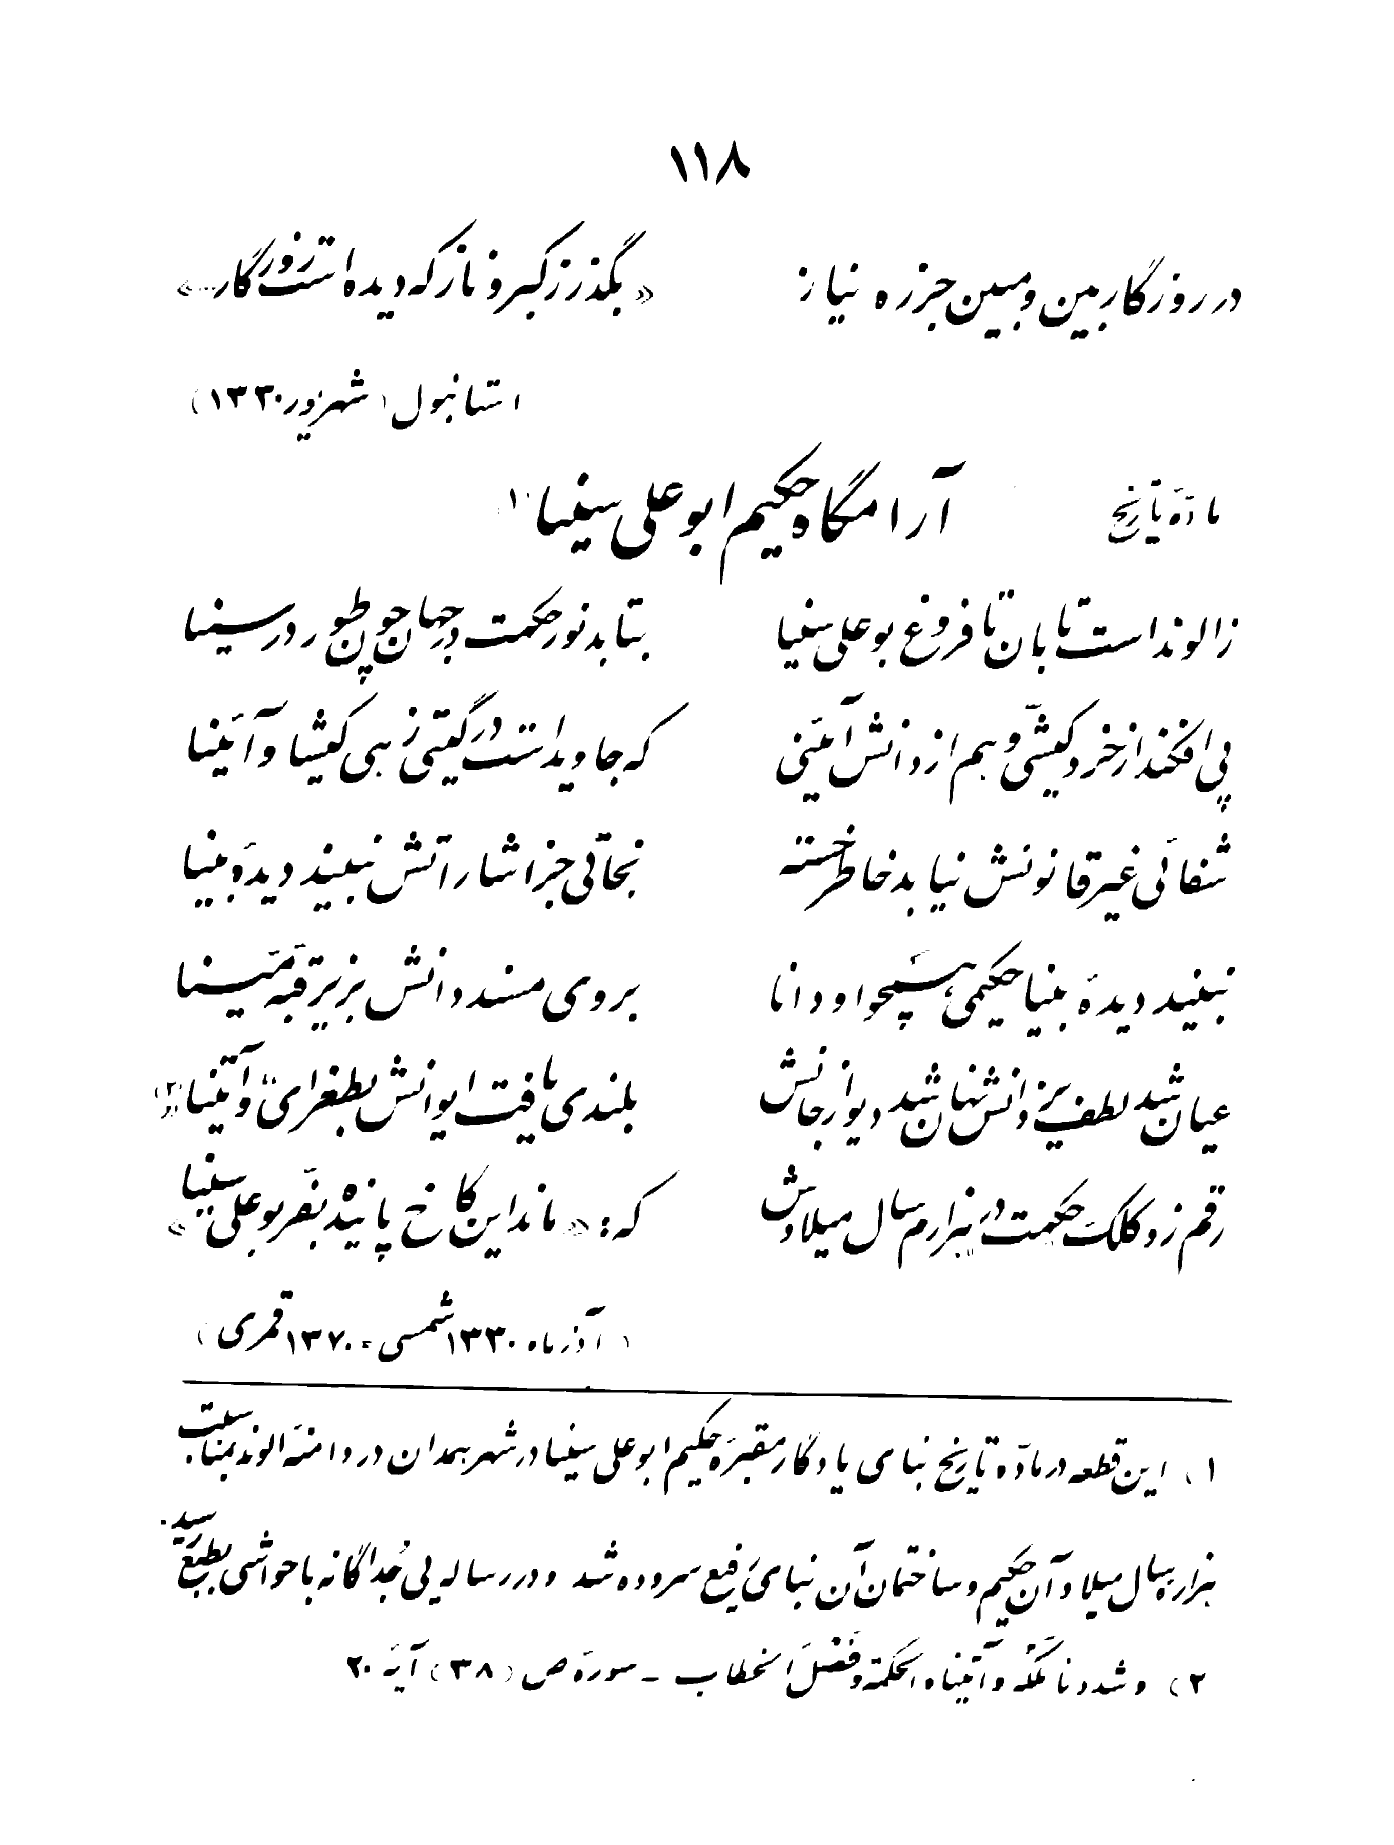 ۱۱۸
در روزگار بین و مبین جز ره نیاز «بگذر ز کبر و ناز که دیده است روزگار...»
استانبول (شهریور ۱۳۳۰)
ماده تاریخ آرامگاه حکیم ابو علی سینا (۱
ز الوند است تابان تا فروغ بوعلی سینا بتابد نور حکمت در جهان چون طور در سینا
پی افکند از خرد کیشی و هم از دانش آئینی که جاوید است در گیتی زهی کیشا و آئینا
شفائی غیر قانونش نیابد خاطر خسته نجاتی جز اشاراتش نبیند دیدهٔ بینا
نبیند دیدهٔ بینا حکیمی همچو او دانا بروی مسند دانش بزیر قبهٔ مینا
عیان شد لطف یزدانش نهان شد دیو از جانش بلندی یافت ایوانش بطغرای «و آتینا» (۲)
رقم زد کلک حکمت در هزارم سال میلادش که: «ماند این کاخ پاینده بفر بوعلی سینا»
(آذر ماه ۱۳۳۰ شمسی = ۱۳۷۰ قمری)
۱) این قطعه در ماده تاریخ بنای یادگار مقبرهٔ حکیم ابو علی سینا در شهر همدان در دامنهٔ الوند بمناسبت
هزاره سال میلاد آن حکیم و ساختمان آن بنای رفیع سروده شد و در رساله یی جداگانه با حواشی بطبع رسید.
۲) و شددنا ملکه و آتیناه الحکمة و فصل الخطاب - سورهٔ ص (۳۸) آیهٔ ۲۰